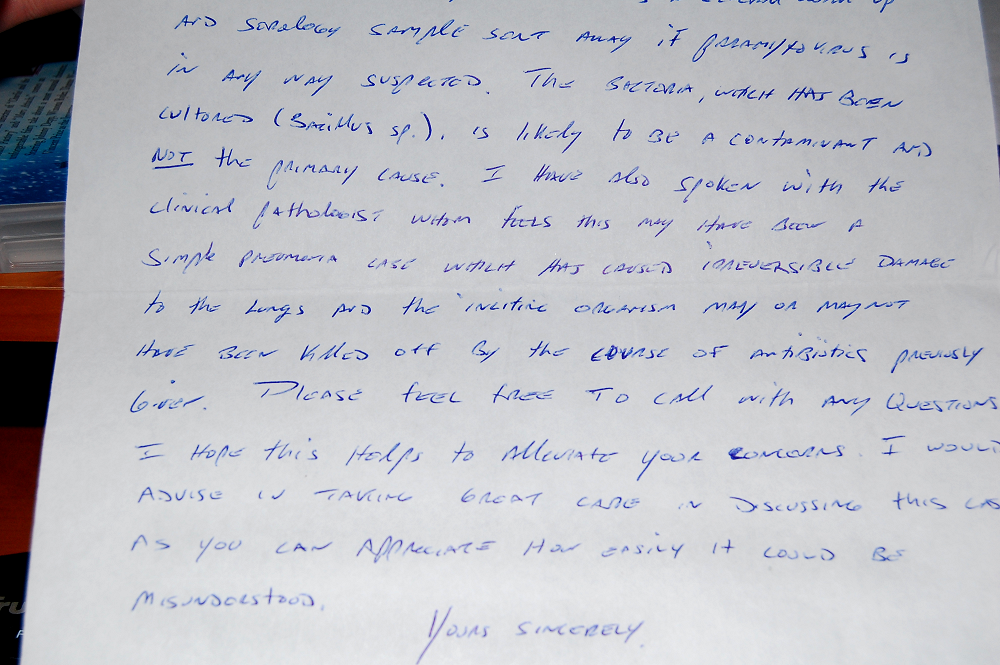 AND SEROLOGY SAMPLE SENT AWAY if PARAMYXOVIRUS is
in ANY WAY SUSPECTED. THE BACTERIA, WHICH HAS BEEN
CULTURED (BACillus sp.), is likely to BE A CONTAMINANT AND
NOT the PRIMARY CAUSE. I HAVE Also SPOKEN with the
Clinical PATHOLOGIST WHOM FEELS this MAY HAVE BEEN A
SIMPLE PNEUMONIA CASE WHICH HAS CAUSED IRREVERSIBLE DAMAGE
to the LUNGS AND the INCITING ORGANISM MAY OR MAY NOT
HAVE BEEN KILLED off By the COURSE OF ANTIBIOTICS PREVIOUSLY
Given. PLEASE FEEL FREE TO CALL with ANY QUESTIONS
I HOPE this HElps to ALLEVIATE YOUR CONCERNS. I WOULD
ADVISE IN TAKING GREAT CARE IN DISCUSSING this CAS
AS YOU CAN APPRECIATE HOW EASILY IT COULD BE
MISUNDERSTOOD.
YOURS SINCERELY.